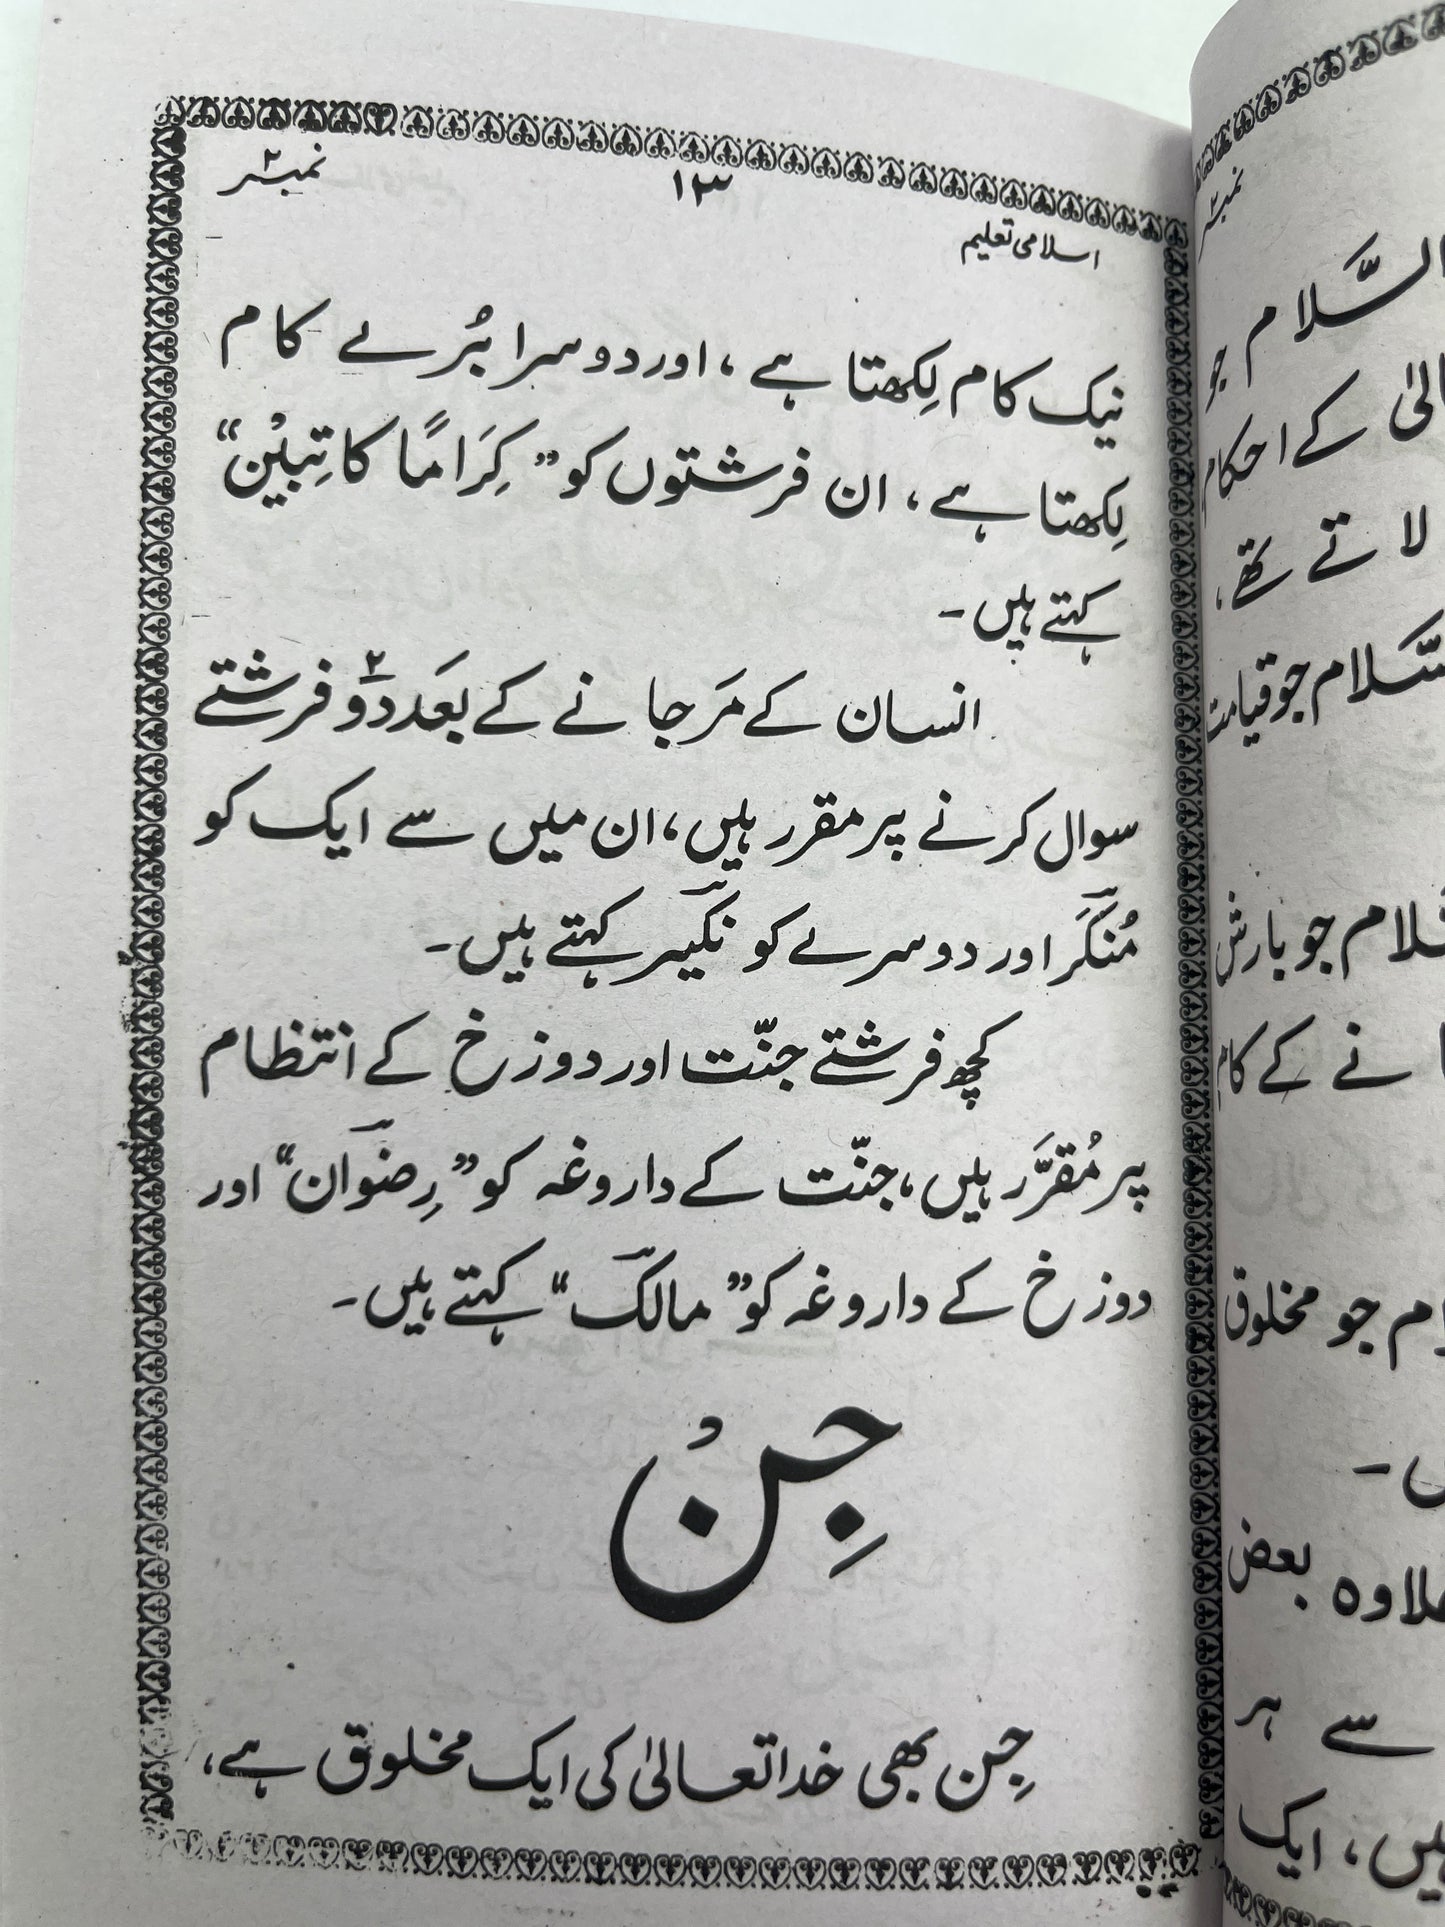 نمبر ۲
۱۳
اسلامی تعلیم
نیک کام لِکھتا ہے ، اور دوسرا بُرے کام
لِکھتا ہے ، ان فرشتوں کو ” کِرَامًا کَاتِبِیْن “
کہتے ہیں ۔
انسان کے مَر جانے کے بعَد دَو۲ فرشتے
سوال کرنے پر مقرر ہیں ، ان میں سے ایک کو
مُنکَر اور دوسرے کو نکیر کہتے ہیں ۔
کچھ فرشتے جنّت اور دوزخ کے انتظام
پر مُقرَّر ہیں ، جنّت کے داروغہ کو ” رِضوان “ اور
دوزخ کے داروغہ کو ” مالک “ کہتے ہیں ۔
جِنْ
جِن بھی خدا تعالیٰ کی ایک مخلوق ہے ،
نمبر ۲
السَّلام جو
کے احکام
لاتے تھے ،
جو قیامت
جو بارش
نے کے کام
جو مخلوق
علاوہ بعض
سے ہر
ہیں ، ایک